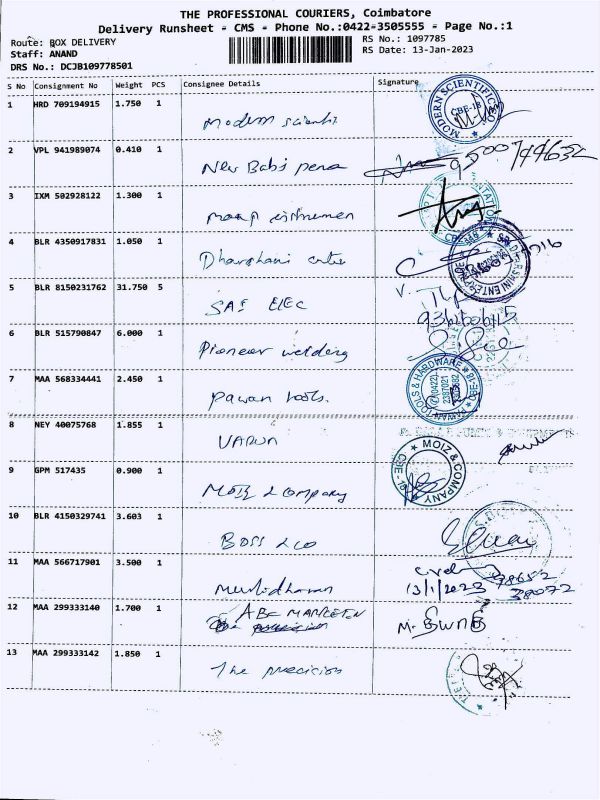 THE PROFESSIONAL COURIERS, Coimbatore
Delivery Runsheet - CMS - Phone No.:0422-3505555 - Page No.:1
Route: BOX DELIVERY
RS No.: 1097785
Staff: ANAND
RS Date: 13-Jan-2023
DRS No.: DCJB109778501
S No Consignment No Weight PCS Consignee Details Signature
1 HRD 709194915 1.750 1 Modern Scienti
MODERN SCIENTIFIC
CBE-18
2 VPL 941989074 0.410 1 New Babs pena
9500744632
3 IXM 502928122 1.300 1
4 BLR 4350917831 1.050 1 Dharshani
5 BLR 8150231762 31.750 5 SAI ELEC
6 BLR 515790847 6.000 1 Pioneer welding
7 MAA 568334441 2.450 1 Pawan tools.
PAWAN TOOLS & HARDWARE
CBE-18
8 NEY 40075768 1.855 1 VARUN
9 GPM 517435 0.900 1 MOIZ & Company
MOIZ & COMPANY
CBE - 18
10 BLR 4150329741 3.603 1 BOSS & CO
11 MAA 566717901 3.500 1 Murlidharan
13/1/2023 98652
38072
12 MAA 299333140 1.700 1 ABC MARKETON
13 MAA 299333142 1.850 1 The precision